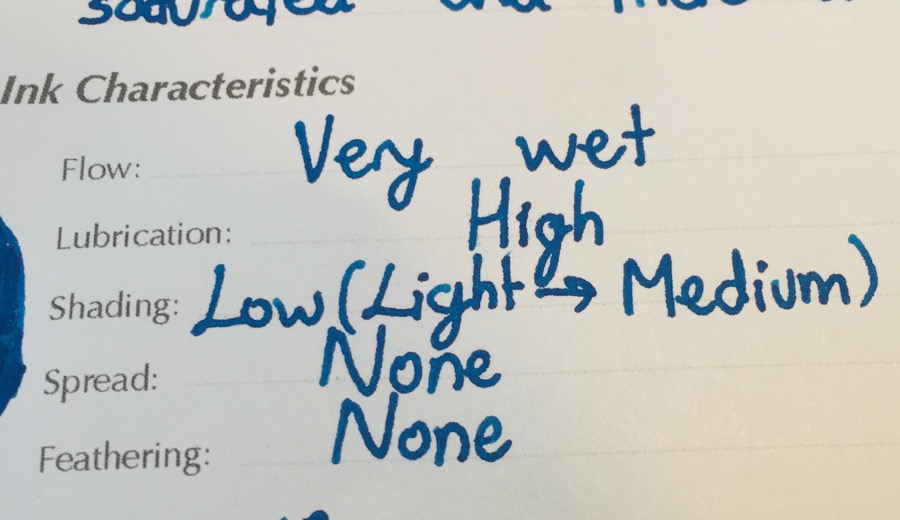 saturated and
Ink Characteristics
Flow: Very wet
Lubrication: High
Shading: Low (Light → Medium)
Spread: None
Feathering: None